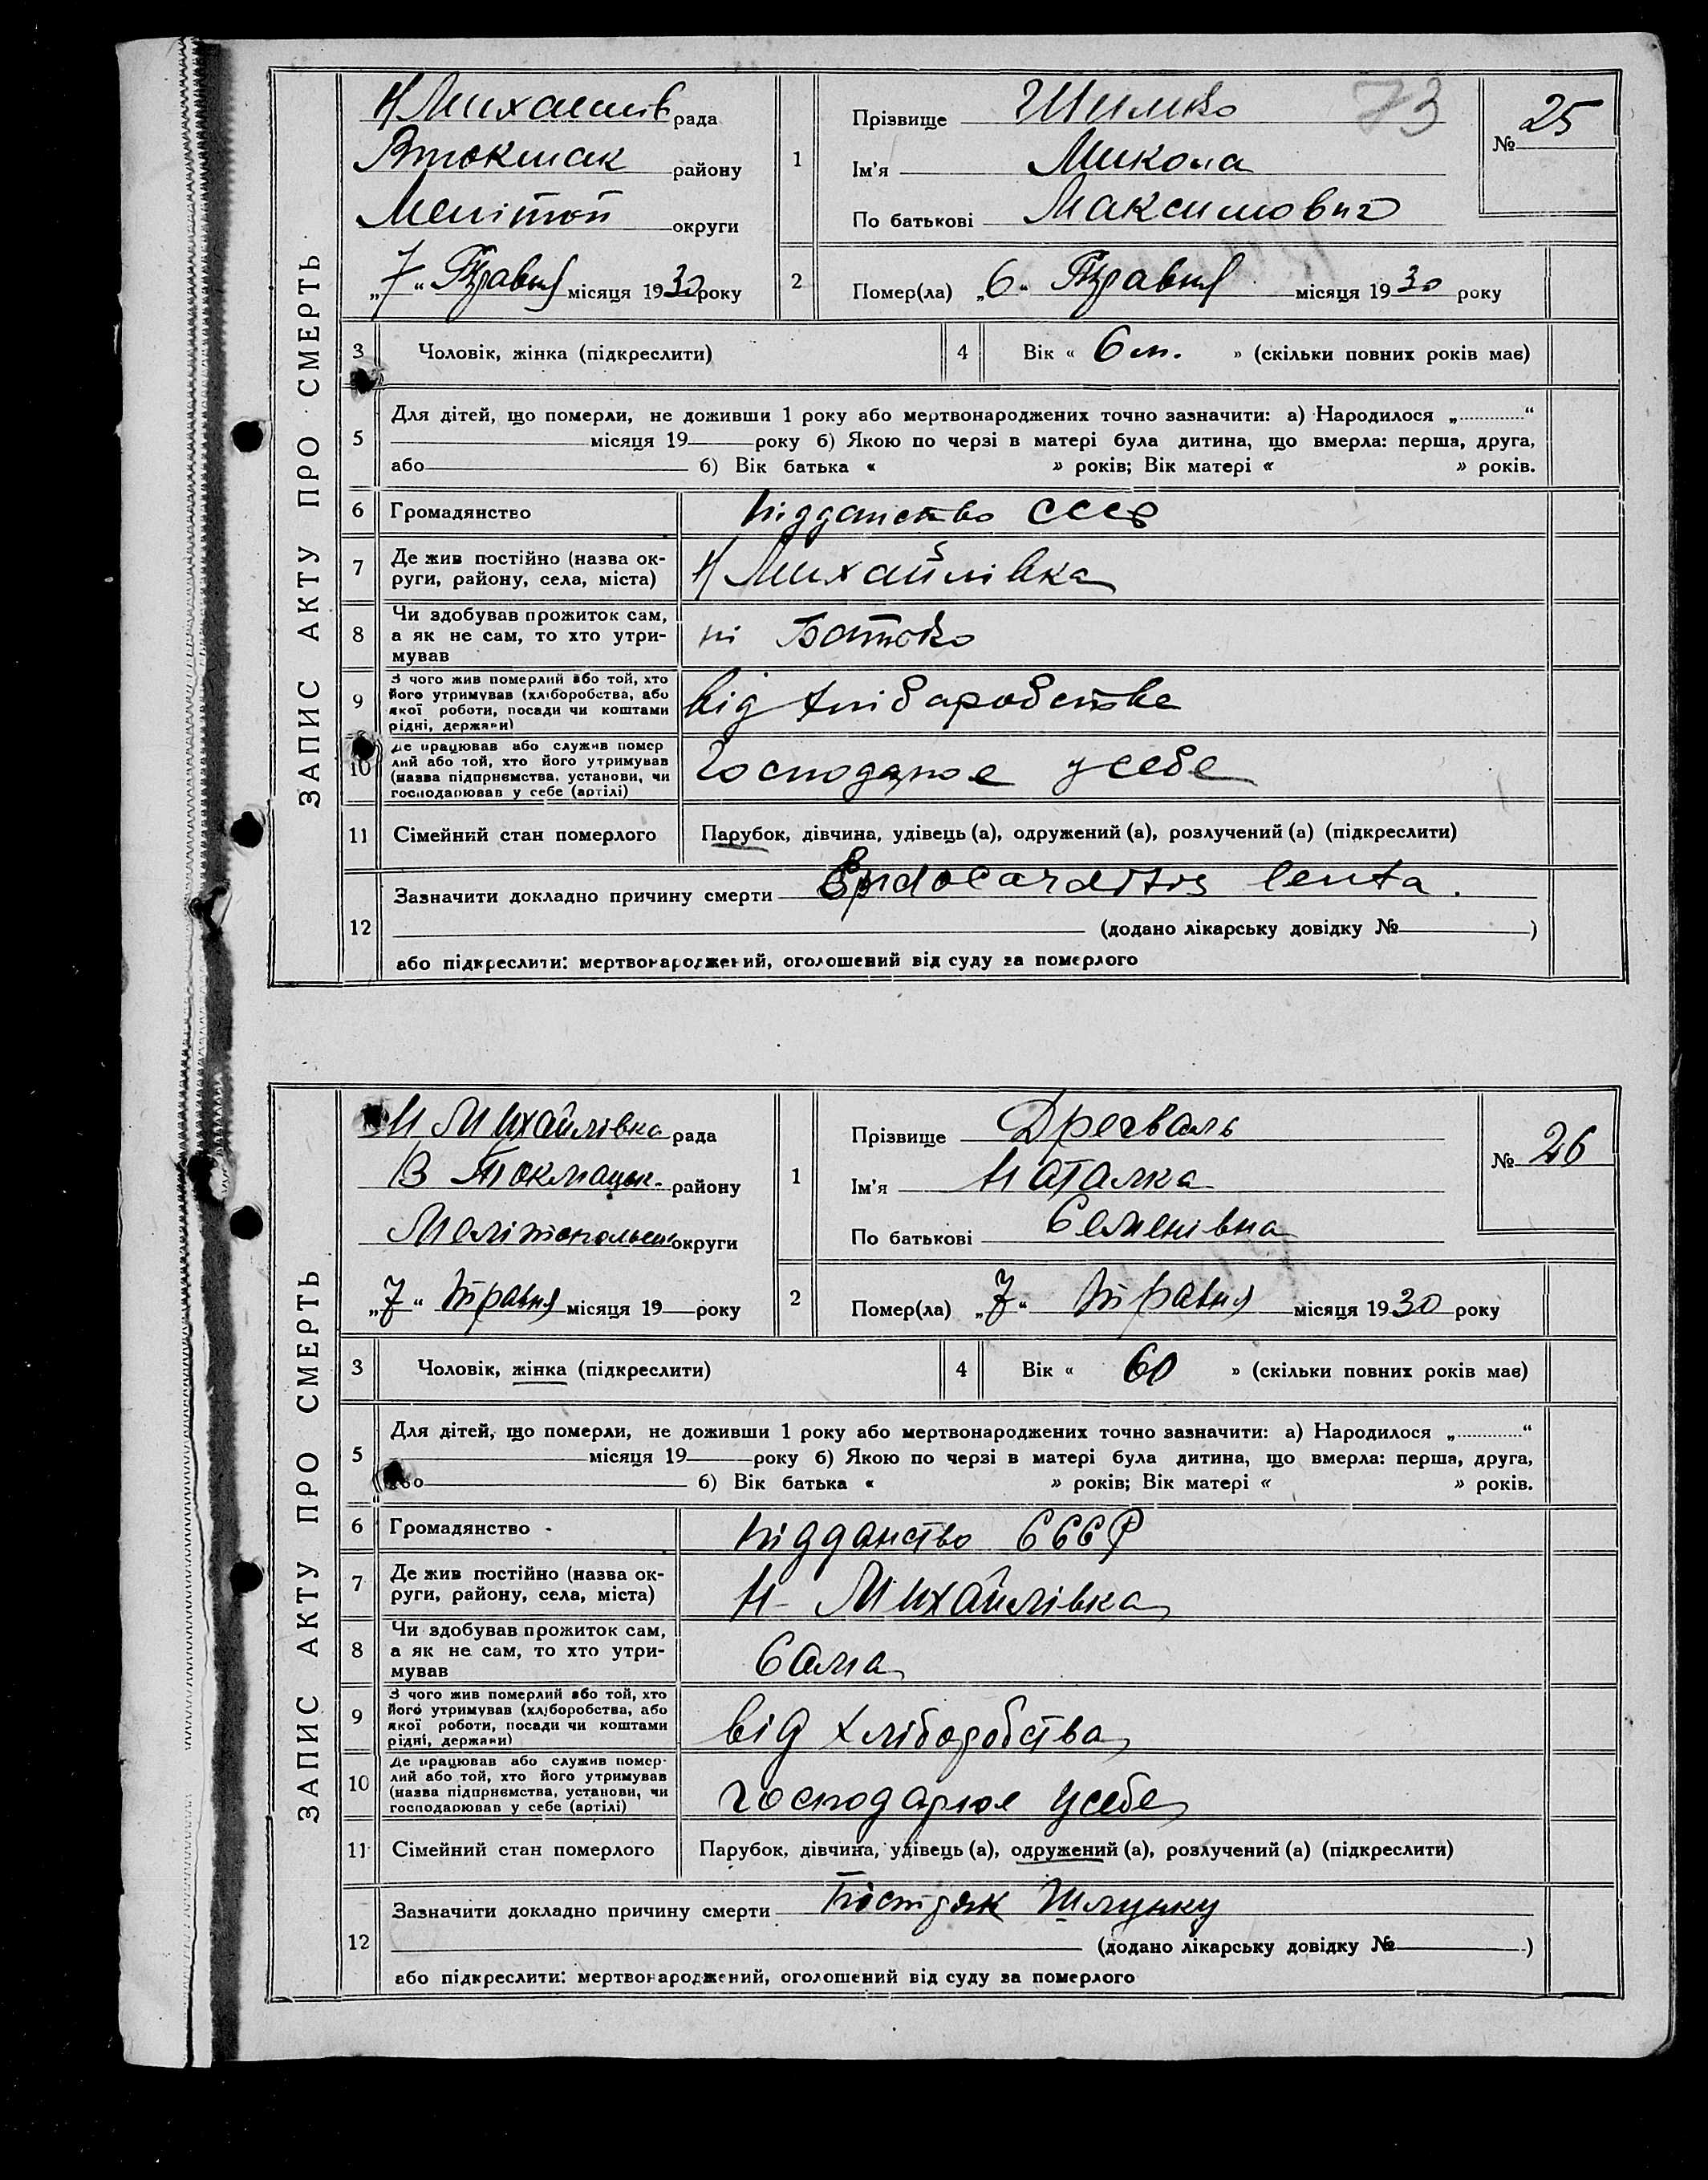 ЗАПИС АКТУ ПРО СМЕРТЬ
Н Михайлів рада
Втокмак району
Мелітоп округи
„7“ Травня місяця 1930 року
73
№ 25
1 Прізвище Шилько
Ім'я Микола
По батькові Максимович
2 Помер(ла) „6“ Травня місяця 1930 року
3 Чоловік, жінка (підкреслити)
4 Вік « 6 м. » (скільки повних років має)
5 Для дітей, що померли, не доживши 1 року або мертвонароджених точно зазначити: а) Народилося „............“
місяця 19 року б) Якою по черзі в матері була дитина, що вмерла: перша, друга,
або б) Вік батька « » років; Вік матері « » років.
6 Громадянство підданство СССР
7 Де жив постійно (назва ок-
руги, району, села, міста) Н Михайлівка
8 Чи здобував прожиток сам,
а як не сам, то хто утри- ні Батько
мував
9 З чого жив померлий або той, хто
його утримував (хліборобства, або
якої роботи, посади чи коштами від хліборобства
рідні, держави)
10 Де працював або служив помер
лий або той, хто його утримував
(назва підприємства, установи, чи Господарює усебе
господарював у себе (артілі)
11 Сімейний стан померлого Парубок, дівчина, удівець (а), одружений (а), розлучений (а) (підкреслити)
12 Зазначити докладно причину смерти Endocarditis lenta.
(додано лікарську довідку № )
або підкреслити: мертвонароджений, оголошений від суду за померлого
ЗАПИС АКТУ ПРО СМЕРТЬ
Н Михайлівка рада
В Токмацьк. району
Мелітопольськ округи
„7“ травня місяця 19 року
№ 26
1 Прізвище Дрегваль
Ім'я Наталка
По батькові Семенівна
2 Помер(ла) „7“ травня місяця 1930 року
3 Чоловік, жінка (підкреслити)
4 Вік « 60 » (скільки повних років має)
5 Для дітей, що померли, не доживши 1 року або мертвонароджених точно зазначити: а) Народилося „............“
місяця 19 року б) Якою по черзі в матері була дитина, що вмерла: перша, друга,
або б) Вік батька « » років; Вік матері « » років.
6 Громадянство підданство СССР
7 Де жив постійно (назва ок-
руги, району, села, міста) Н-Михайлівка
8 Чи здобував прожиток сам,
а як не сам, то хто утри- Сама
мував
9 З чого жив померлий або той, хто
його утримував (хліборобства, або
якої роботи, посади чи коштами від хліборобства
рідні, держави)
10 Де працював або служив помер-
лий або той, хто його утримував
(назва підприємства, установи, чи господарює усебе
господарював у себе (артілі)
11 Сімейний стан померлого Парубок, дівчина, удівець (а), одружений (а), розлучений (а) (підкреслити)
12 Зазначити докладно причину смерти Пістряк Шлунку
(додано лікарську довідку № )
або підкреслити: мертвонароджений, оголошений від суду за померлого